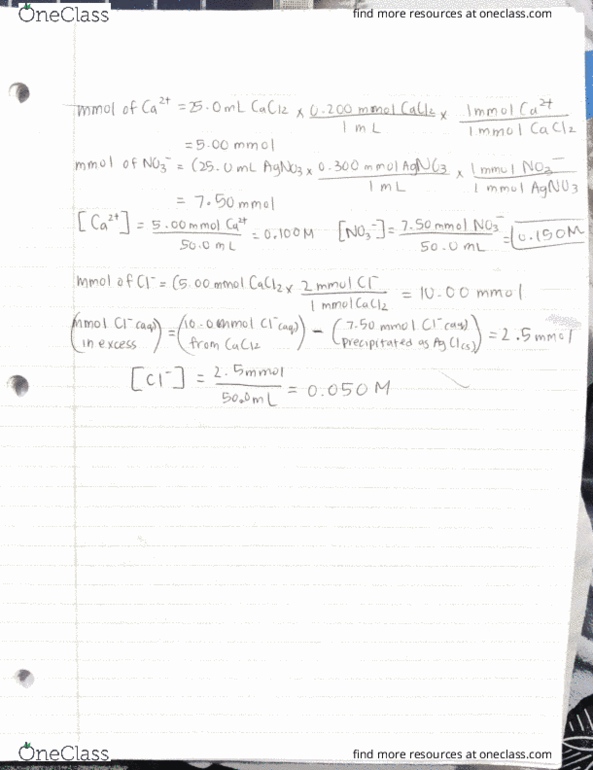 OneClass
find more resources at oneclass.com
mmol of Ca²⁺ = 25.0 mL CaCl2 x 0.200 mmol CaCl2 / 1 mL x 1 mmol Ca²⁺ / 1 mmol CaCl2
= 5.00 mmol
mmol of NO3⁻ = (25.0 mL AgNO3 x 0.300 mmol AgNO3 / 1 mL x 1 mmol NO3⁻ / 1 mmol AgNO3
= 7.50 mmol
[Ca²⁺] = 5.00 mmol Ca²⁺ / 50.0 mL = 0.100 M [NO3⁻] = 7.50 mmol NO3⁻ / 50.0 mL = 0.150 M
mmol of Cl⁻ = (5.00 mmol CaCl2 x 2 mmol Cl⁻ / 1 mmol CaCl2 = 10.00 mmol
(mmol Cl⁻(aq) in excess) = (10.00 mmol Cl⁻(aq) from CaCl2) - (7.50 mmol Cl⁻(aq) precipitated as AgCl(s)) = 2.5 mmol
[Cl⁻] = 2.5 mmol / 50.0 mL = 0.050 M
OneClass
find more resources at oneclass.com